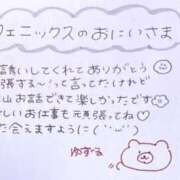 フェニックスのおにいさま
誘いしてくれてありがとう
張する〜!って言ってたけれど
山お話できて楽しかったです
しいお仕事も頑張ってね♡
た会えますように(¨)
ゆずる